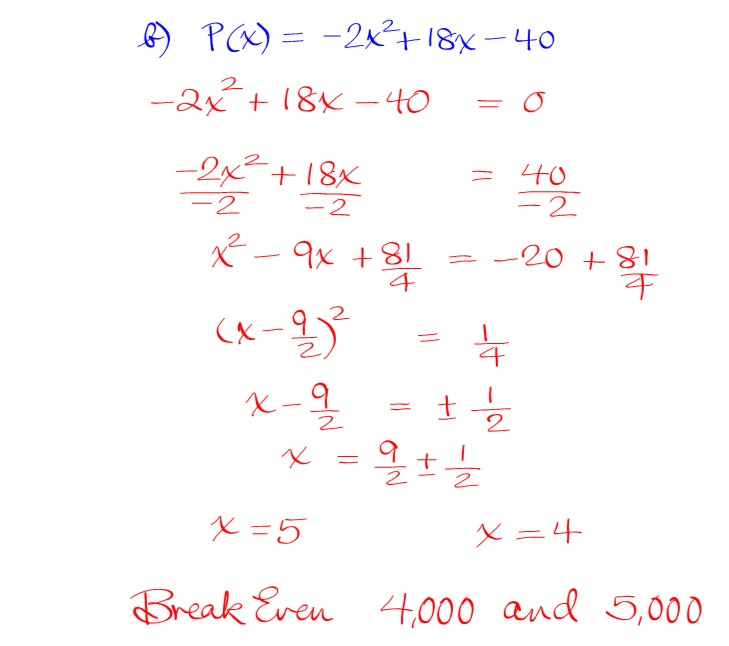 b) P(x) = -2x² + 18x - 40
-2x² + 18x - 40 = 0
-2x²/-2 + 18x/-2 = 40/-2
x² - 9x + 81/4 = -20 + 81/4
(x - 9/2)² = 1/4
x - 9/2 = ± 1/2
x = 9/2 ± 1/2
x = 5 x = 4
Break Even 4,000 and 5,000